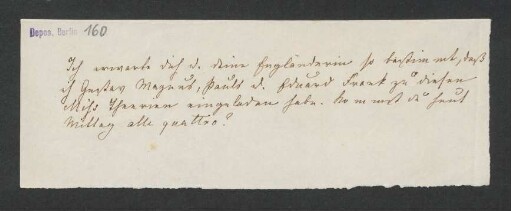 Depos. Berlin 160
Ich erwarte dich u. deine Engländerin so bestimmt, daß
ich Gustav Magnus, Pauls u. Eduard Franck zu diesen
Miß eingeladen habe. Kommst du heut
Mittag alle quattro?